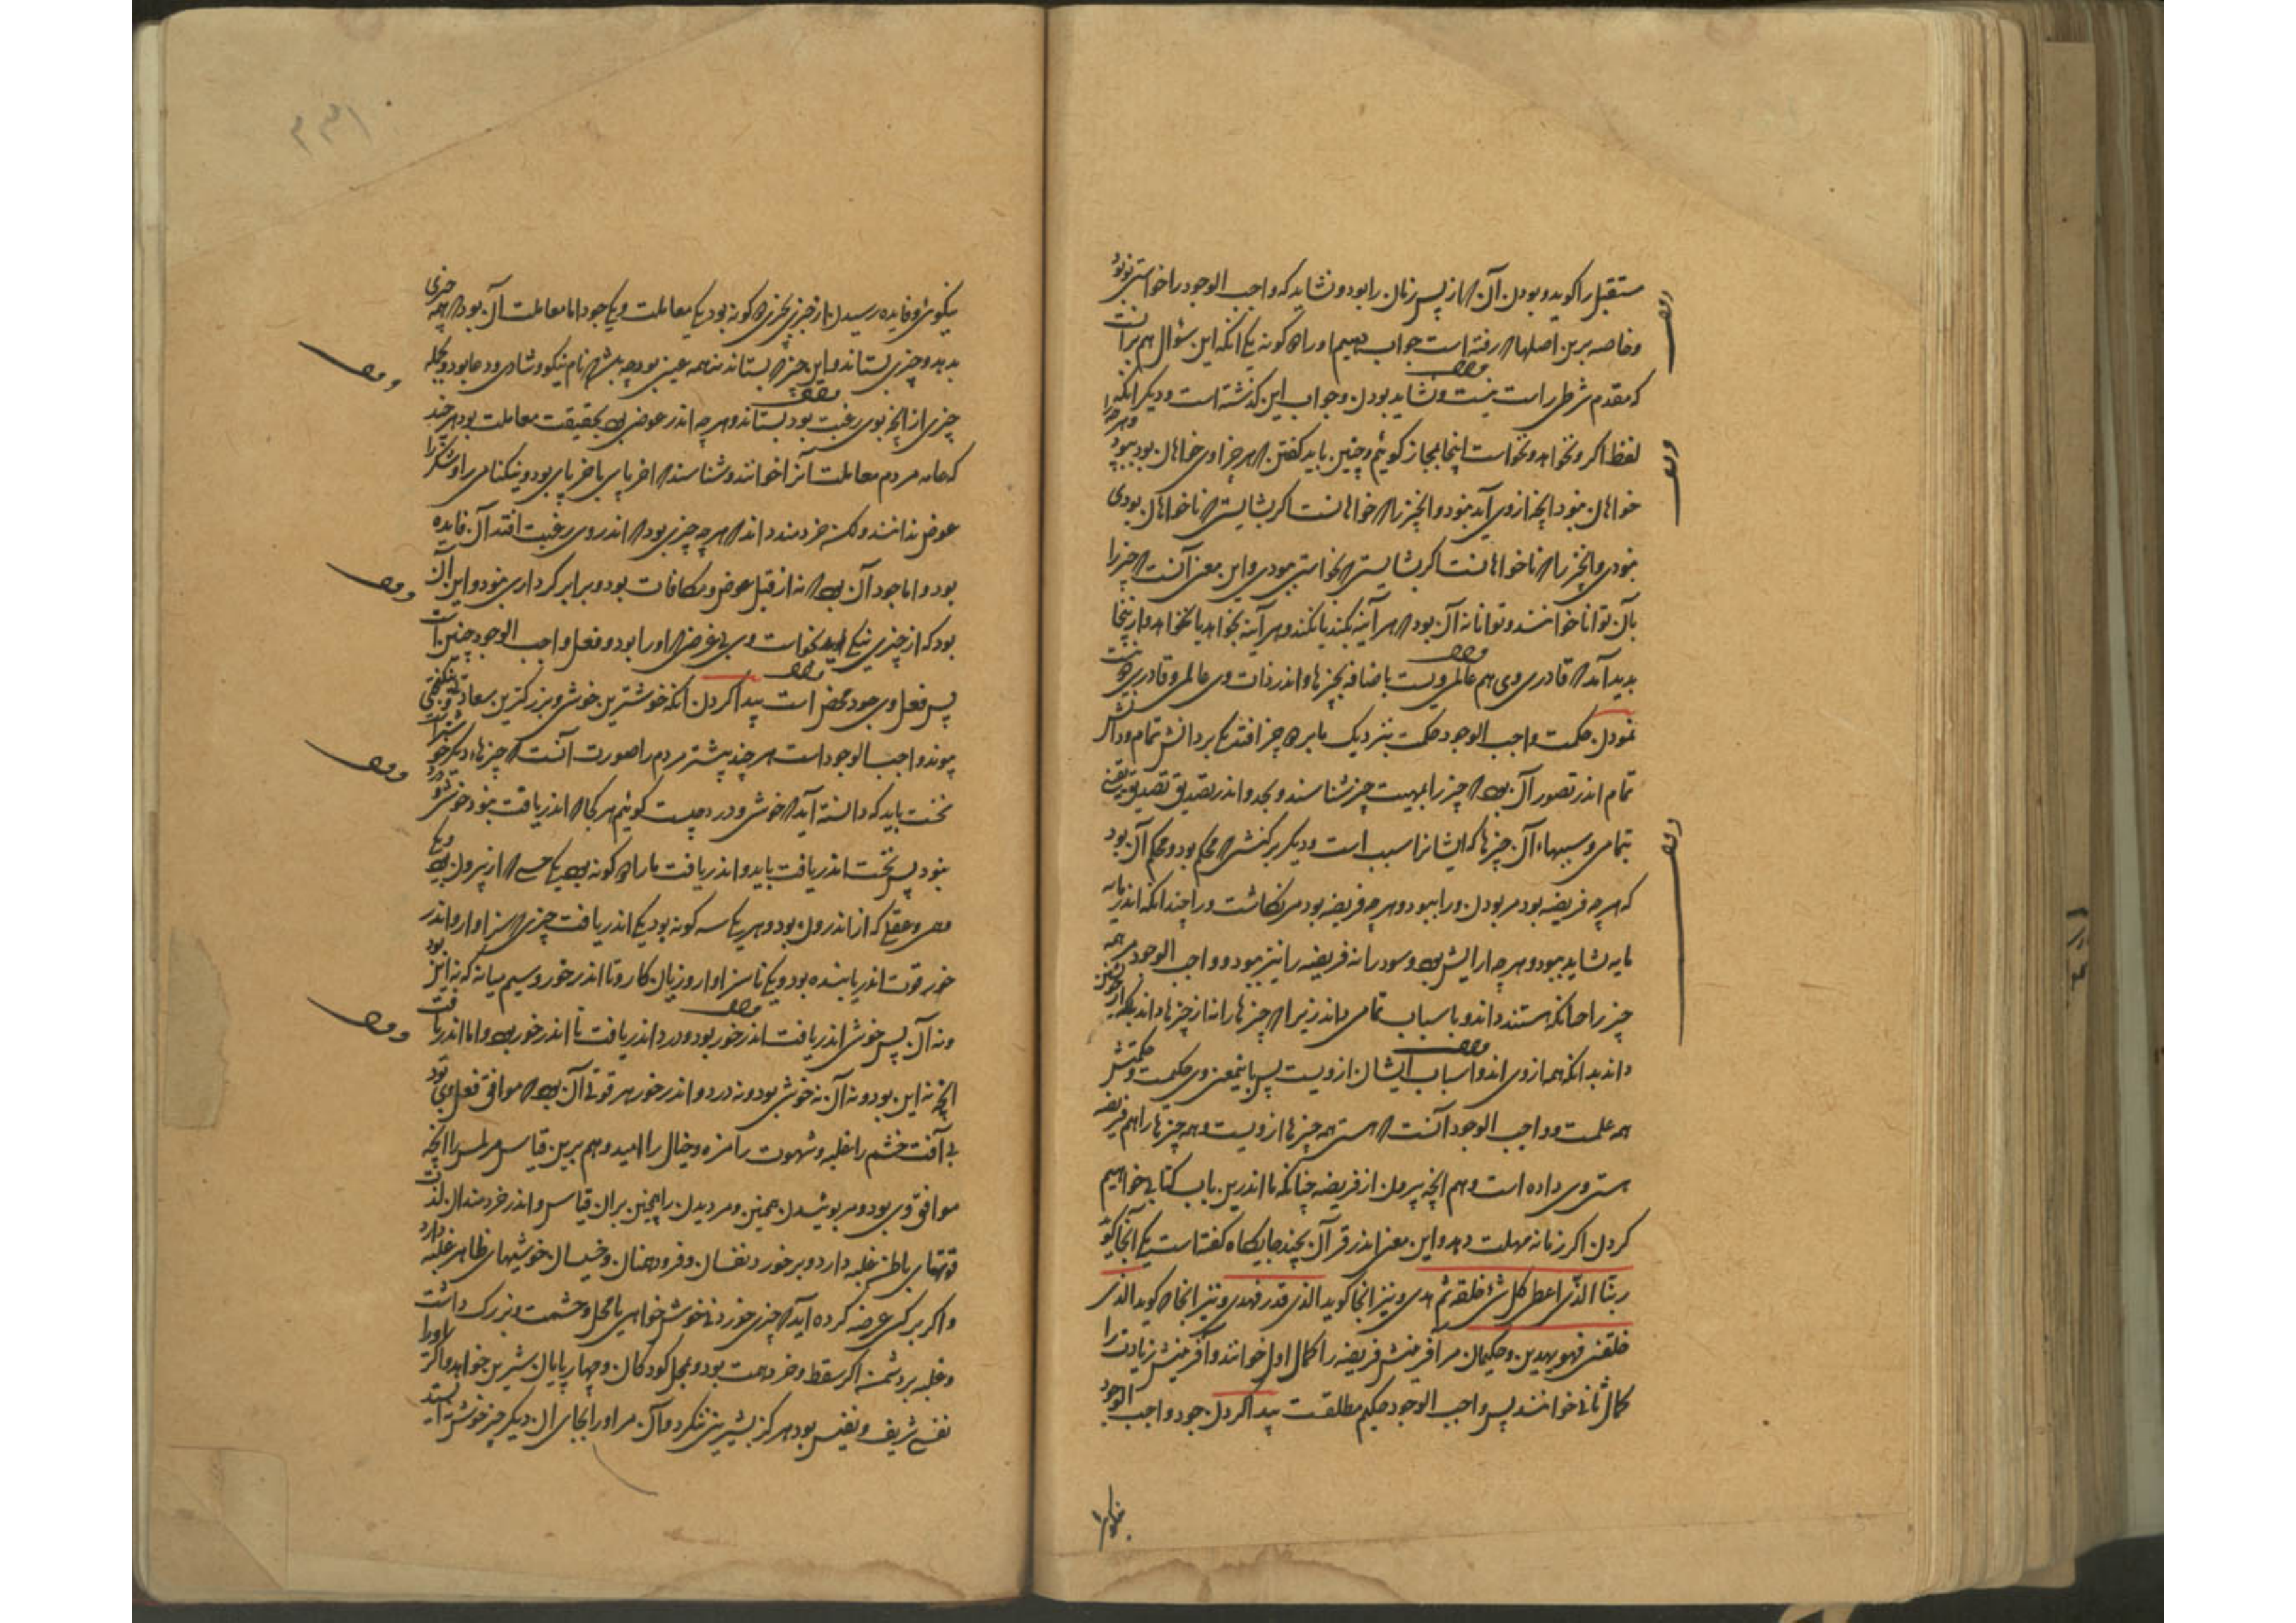 مستقبل را گوید و بودن آن که از پس زمان را بود و نشاید که واجب الوجود را خواستی نو بود
و خاصه برین اصلها که رفته است جواب دهیم او را دو گونه یکی آنکه این سؤال هم بر آنست
که مقدم شرطی راست نیست و نشاید بودن و جواب این گذشته است و دیگر آنکه
لفظ اگر و نخواهد و نخواست اینجا بمجاز گوئیم و چنین باید گفتن که هر چرا وی خواهان بود ببود و هر چرا
خواهان نبود آنچه از وی آید نبود و آن چیز را که خواهانست اگر بشایستی که ناخواهان بودی
نبودی و آن چیز را که ناخواهانست اگر بشایستی که بخواستی ببودی و این معنی آنست که چیز را
بآن توانا خوانند و توانا نه آن بود که هر آینه بکند یا نکند و هر آینه بخواهد یا نخواهد و از اینجا
پدید آمد که قادری وی هم عالمی ویست باضافه بچیزها و اندر ذات وی عالمی و قادری دو نیست
نمودن حکمت واجب الوجود حکمت بنزدیک ما بر دو چیز افتد یکی بر دانش تمام و دانش
تمام اندر تصور آن بود که چیز را بمهیت چیز شناسند و بحد و اندر تصدیق تصدیق یقینی
بتمامی و سببهاء آن چیزها که ایشانرا سبب است و دیگر بر کنشی که محکم بود و محکم آن بود
که هر چه فریضه بود مر بودن ورا ببود و هر چه فریضه بود مر نگاشت ورا چندانکه اندر مایه
مایه شاید ببود و هر چه آرایش بود و سود را نه فریضه را نیز ببود و واجب الوجود مر همه
چیز را چنانکه هستند داند و باسباب تمامی داند زیرا که چیزها را نه از چیزها داند بلکه از خویشتن
داند بدانکه همه از وی اند و اسباب ایشان از ویست پس باینمعنی وی حکیمست و حکمتش
همه علمست و واجب الوجود آنست که هستی همه چیزها از ویست و همه چیزها را هم فریضه
هستی وی داده است و هم آنچه بیرون از فریضه چنانکه ما اندرین باب کتابی خواهیم
کردن اگر زمانه مهلت دهد و این معنی اندر قرآن بچند جایگاه گفتا است یکی آنجا گوید
ربنا الذی اعطی کل شیٔ خلقه ثم هدی و نیز آنجا گوید الذی قدر فهدی و نیز آنجا که گوید الذی
خلقنی فهو یهدین و حکیمان مر آفرینش فریضه را کمال اول خوانند و آفرینش زیادت را
کمال ثانی خوانند پس واجب الوجود حکیم مطلقست پیدا کردن جود واجب الوجود
نیکوئی و فایده رسیدن از چیزی بچیزی دو گونه بود یکی معاملت و یکی جود اما معاملت آن بود که چیزی
بدهد و چیزی بستاند و این چیز که بستاند نه همه عینی بود چه باشد که نام نیکو و شادی و دعا بود و بجمله
چیزی از آنچه بوی رغبت بود بستاند و هر چه اندر عوض بود بحقیقت معاملت بود هر چند
که عامه مردم معاملت آنرا خوانند و شناسند که اخریانی باخریانی بود و نیکنامی را و شکر را
عوض ندانند ولکن خردمند داند که هر چه چیزی بود که اندر وی رغبت افتد آن فایده
بود و اما جود آن بود که نه از قبل عوض و مکافات بود و برابر کرداری نبود و این آن
بود که از چیزی نیکی آید بخواست وی بی غرضی که او را بود و فعل واجب الوجود چنین است
پس فعل وی جود محض است پیدا کردن آنکه خوشترین خوشی و بزرگترین سعادتی و نیکبختی
پیوند واجب الوجود است هر چند بیشتر مردم را صورت آنست که چیزهاء دیگر خوشتر است
نخست باید که دانسته آید که خوشی و درد چیست گوئیم هر کجا که اندریافت نبود خوشی و درد
نبود پس نخست اندریافت باید و اندریافت ما را دو گونه بود یکی حسی که از بیرون بود و یکی
وهمی و عقلی که از اندرون بود و هر یکی سه گونه بود یکی اندریافت چیزی که سزاوار و اندر
خور قوت اندریابنده بود و یکی ناسزاوار و زیان کار و نا اندر خور و سیم میانه که نه این بود
و نه آن پس خوشی اندریافت اندر خور بود و درد اندریافت نا اندر خور بود و اما اندریافت
آنچه نه این بود و نه آن نه خوشی بود و نه درد و اندر خور هر قوتی آن بود که موافق فعل وی بود
بی آفت خشم را غلبه و شهوت را مزه و خیال را امید و هم برین قیاس مر لمس را آنچه
موافق وی بود و مر بوئیدن همین و مر دیدن را همچنین بران قیاس و اندر خردمندان لذت
قوتهای باطن غلبه دارد و بر خورد نفسان و فرودهمتان و خسیسان خوشیهای ظاهر غلبه دارد
و اگر بر کسی عرضه کرده آید که چیزی خوردنی خوش خواهی یا محل و حشمت و بزرگ داشت
و غلبه بر دشمن اگر سقط و خرد همت بود و بمحل کودکان و چهارپایان شیرین خواهد و اگر او را
نفسی شریف و نفیس بود هرگز بشیرینی ننگرد و آن مر او را بجای آن دیگر چیز خوش نه ایستد